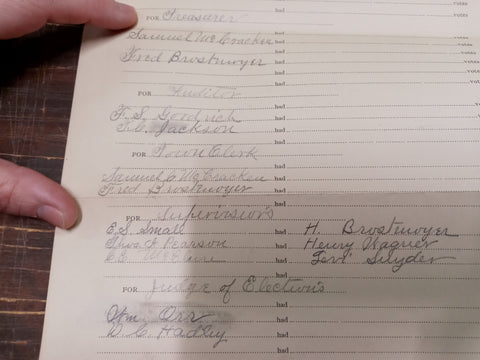 votes
FOR Treasurer had votes
Samuel McCracken had votes
Fred Brostewyer had votes
had votes
had
FOR Auditor had
F. S. Goodrich had
Jackson had
had
FOR Town Clerk had
Samuel C McCracken had
Fred Brostewyer had
had
FOR Supervisors had
E. S. Small had H. Brostewyer
Pearson had Henry Wagner
had Levi Snyder
FOR Judge of Election's had
had
Wm. Orr had
W. C. Hadley had
had